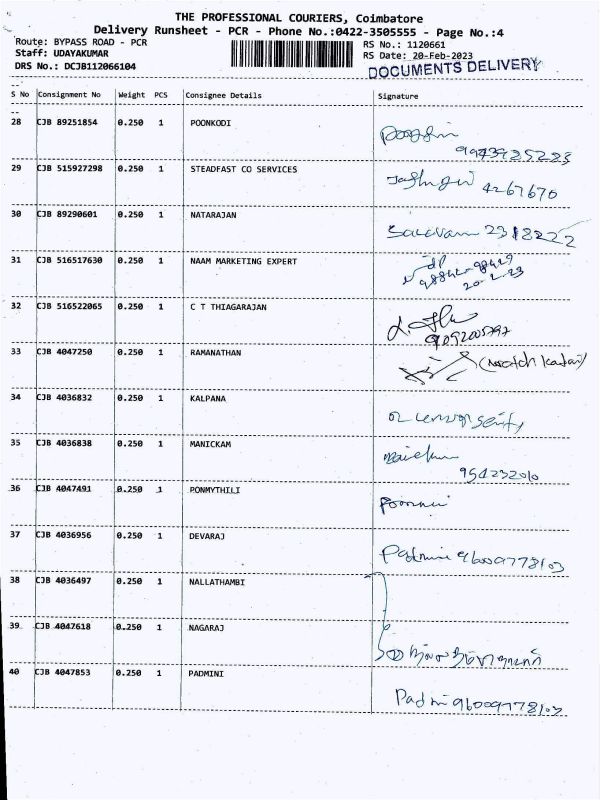 THE PROFESSIONAL COURIERS, Coimbatore
Delivery Runsheet - PCR - Phone No.:0422-3505555 - Page No.:4
Route: BYPASS ROAD - PCR
RS No.: 1120661
Staff: UDAYAKUMAR
RS Date: 20-Feb-2023
DRS No.: DCJB112066104
DOCUMENTS DELIVERY
S No Consignment No Weight PCS Consignee Details Signature
28 CJB 89251854 0.250 1 POONKODI
29 CJB 515927298 0.250 1 STEADFAST CO SERVICES
4267670
30 CJB 89290601 0.250 1 NATARAJAN
Saravanan 2318222
31 CJB 516517630 0.250 1 NAAM MARKETING EXPERT
98842-98429
20-2-23
32 CJB 516522065 0.250 1 C T THIAGARAJAN
9092005797
33 CJB 4047250 0.250 1 RAMANATHAN
(watch kadai)
34 CJB 4036832 0.250 1 KALPANA
35 CJB 4036838 0.250 1 MANICKAM
954232010
36 CJB 4047491 0.250 1 PONMYTHILI
37 CJB 4036956 0.250 1 DEVARAJ
Padmini 96009778103
38 CJB 4036497 0.250 1 NALLATHAMBI
39 CJB 4047618 0.250 1 NAGARAJ
40 CJB 4047853 0.250 1 PADMINI
Padmi 96009778103